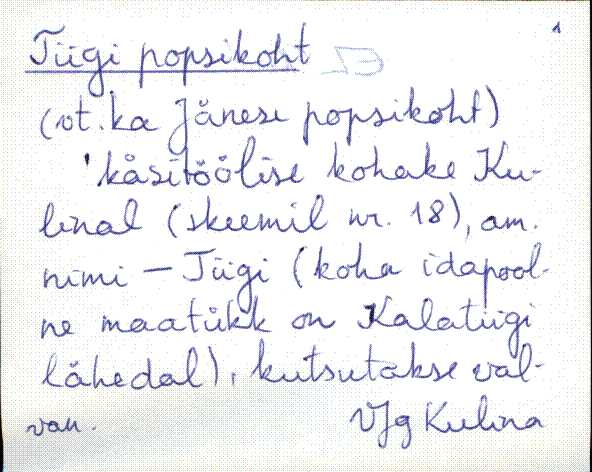 1
Tiigi popsikoht
(vt. ka Jänese popsikoht)
'käsitöölise kohake Ku-
linal (skeemil nr. 18), am.
nimi – Tiigi (koha idapool-
ne maatükk on Kalatiigi
lähedal), kutsutakse val-
van. VJg Kulina